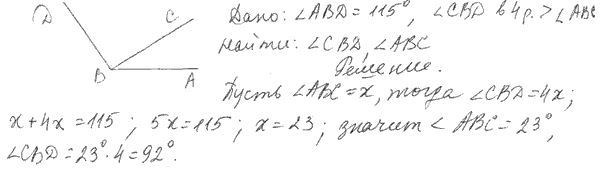 D
C
B
A
Дано: ∠ABD = 115°, ∠CBD в 4 р. > ∠ABC
Найти: ∠CBD, ∠ABC
Решение.
Пусть ∠ABC = x, тогда ∠CBD = 4x;
x + 4x = 115; 5x = 115; x = 23; значит ∠ABC = 23°,
∠CBD = 23° · 4 = 92°.